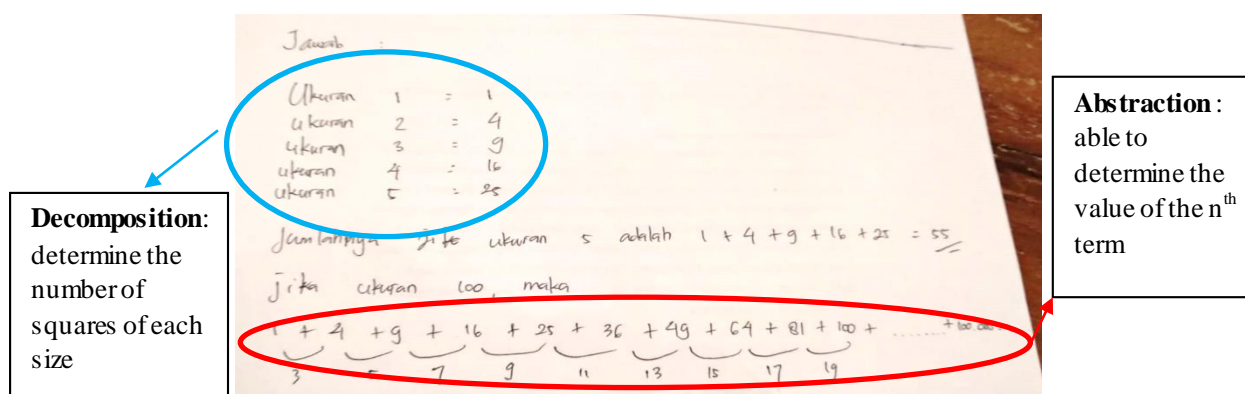 Jawab :
Ukuran 1 = 1
ukuran 2 = 4
ukuran 3 = 9
ukuran 4 = 16
ukuran 5 = 25
Jumlahnya jika ukuran 5 adalah 1 + 4 + 9 + 16 + 25 = 55
jika ukuran 100, maka
1 + 4 + 9 + 16 + 25 + 36 + 49 + 64 + 81 + 100 + ........ +
3 5 7 9 11 13 15 17 19
Decomposition:
determine the
number of
squares of each
size
Abstraction :
able to
determine the
value of the nth
term